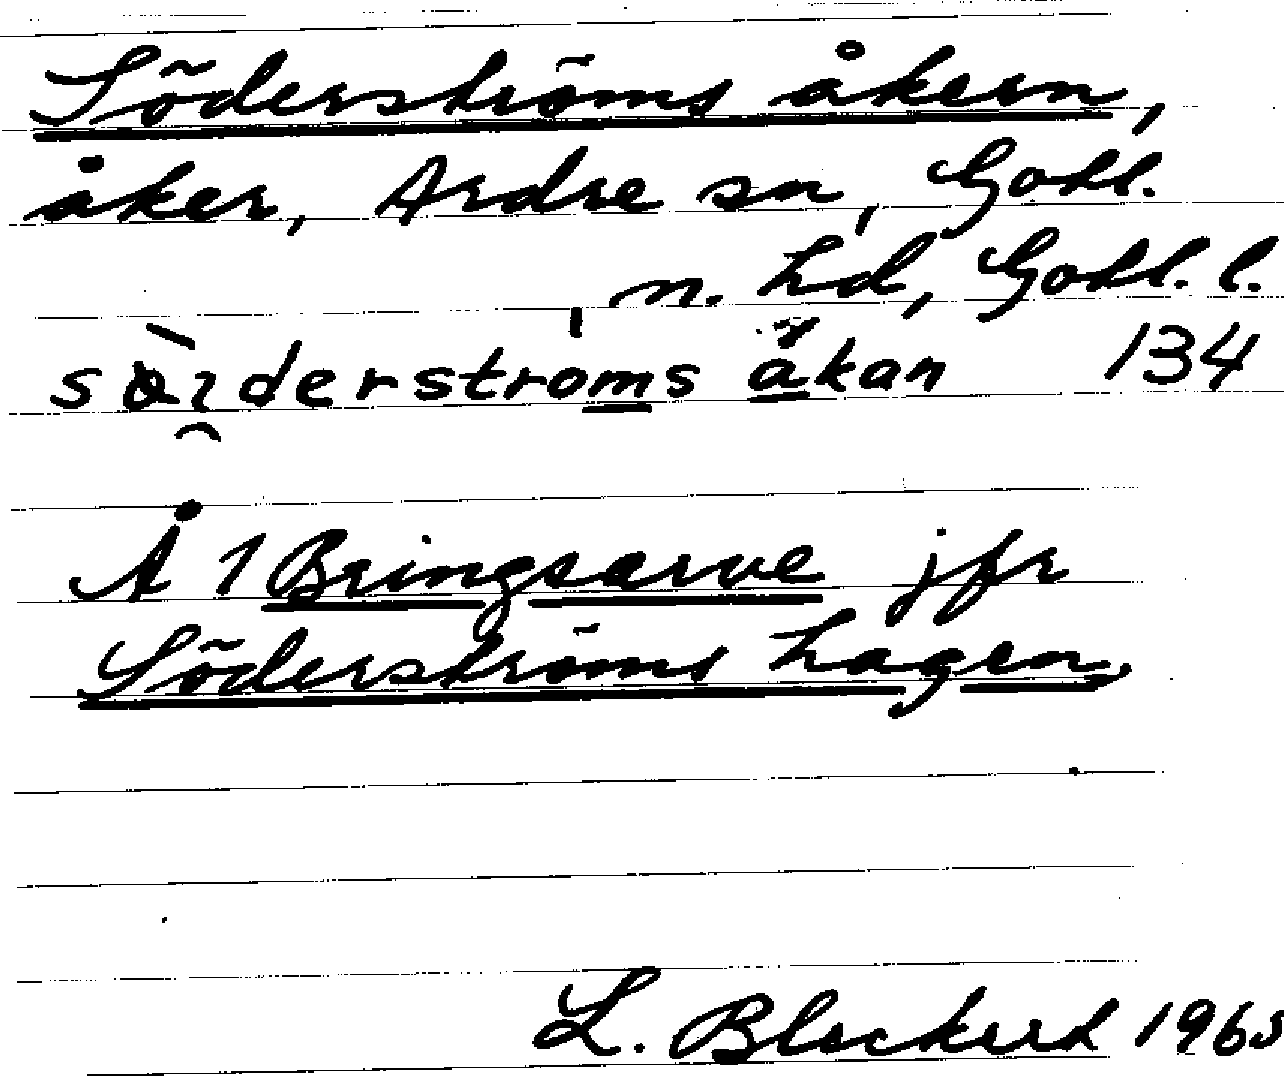 Söderströms åkern,
åker, Ardre sn, Gotl.
n. hd, Gotl. l.
söderströms åkan 134
Å 1 Bringsarve jfr
Söderströms hagen,
L. Blockert